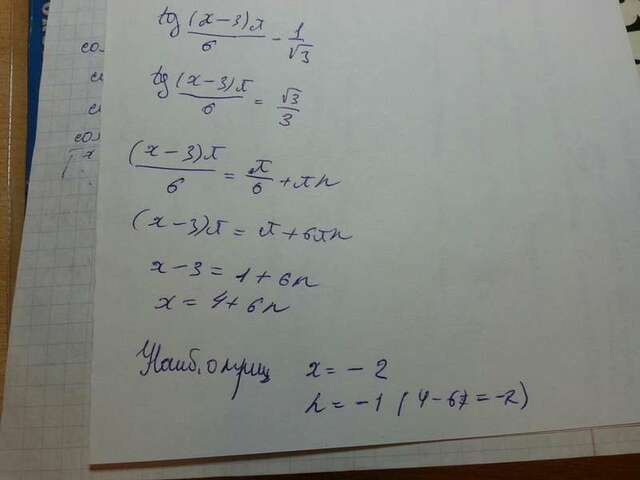 tg (x-3)π/6 - 1/√3
tg (x-3)π/6 = √3/3
(x-3)π/6 = π/6 + πn
(x-3)π = π + 6πn
x - 3 = 1 + 6n
x = 4 + 6n
Наиб. отриц x = -2
n = -1 (4-6 = -2)